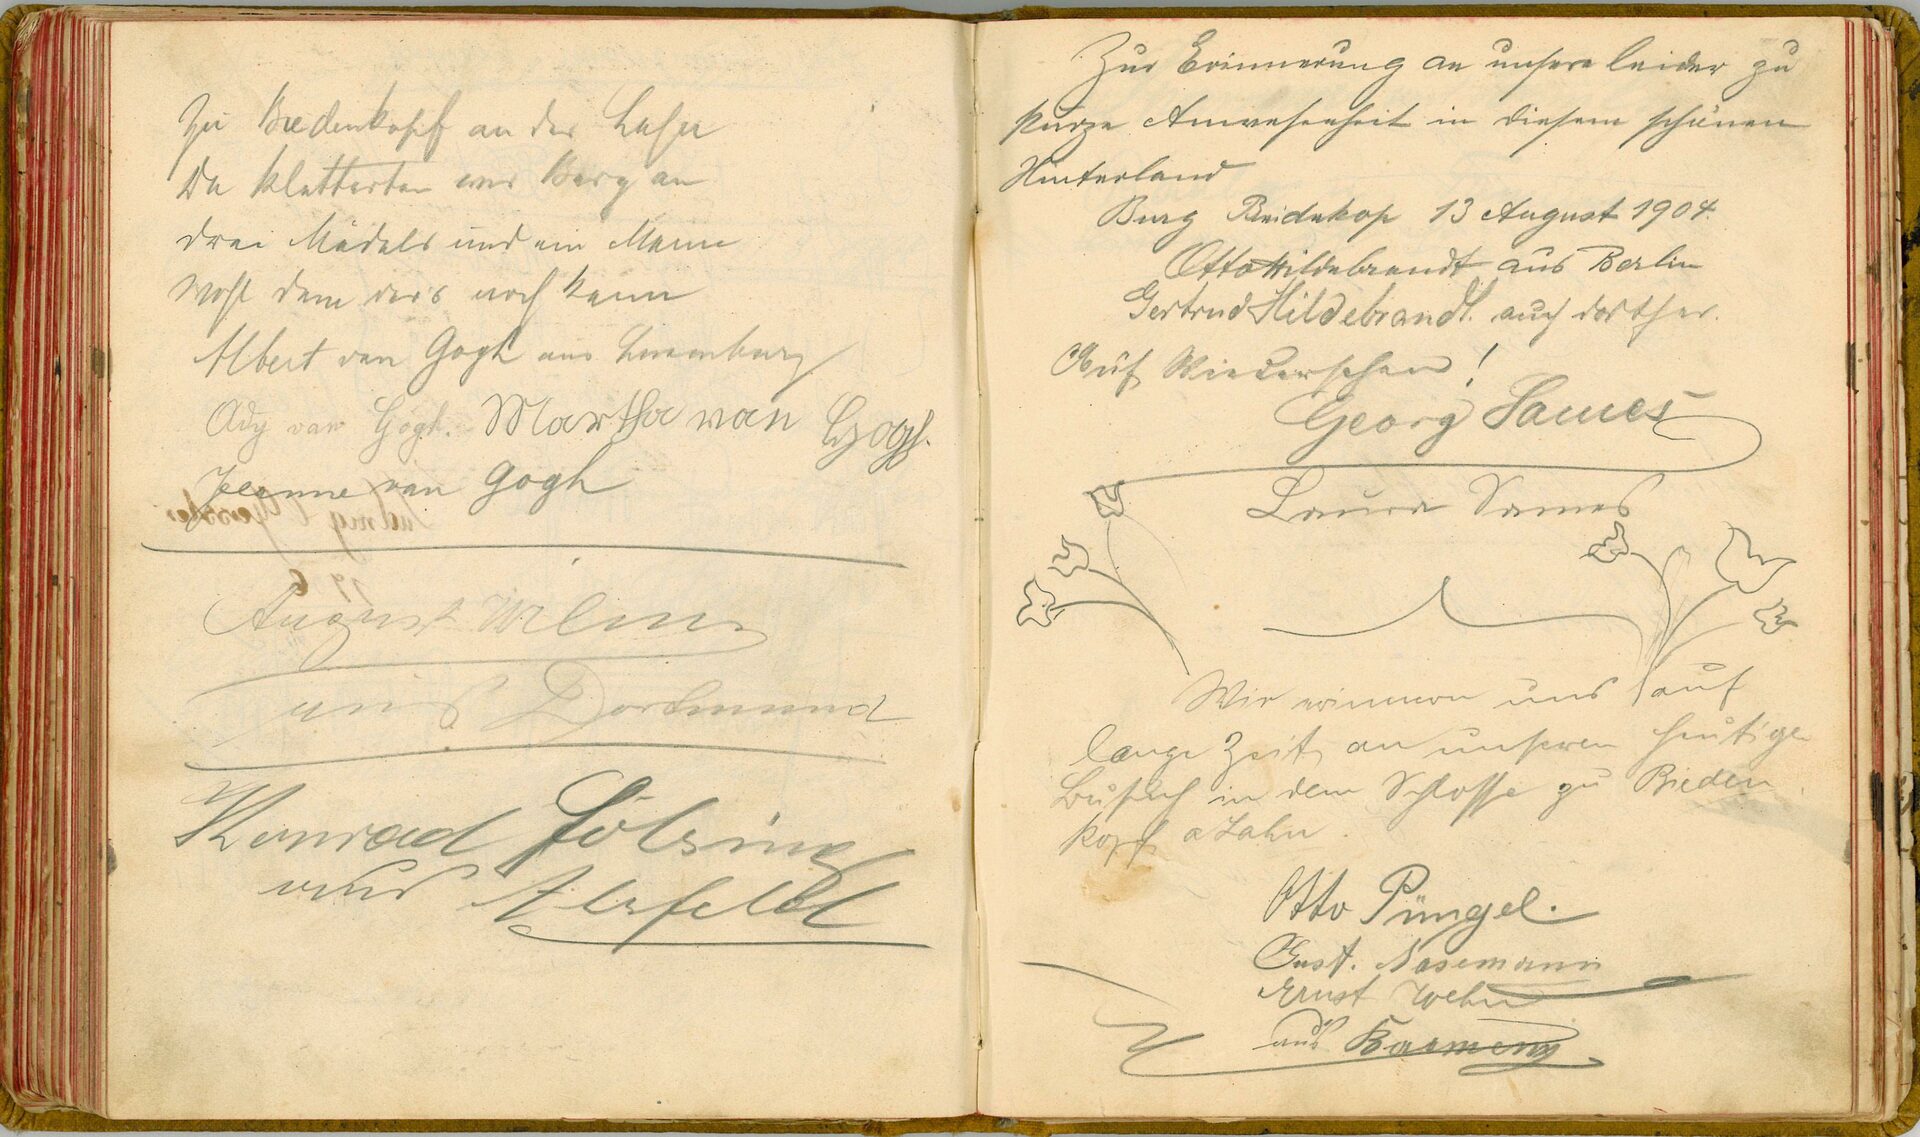 Zu Biedenkopf an der Lahn
Da kletterten wir Berg an
drei Mädels und ein Mann
Wohl dem der's noch kann
Albert van Gogh aus Luxemburg
Ady van Gogh. Martha van Gogh.
Jeanne van Gogh
August
aus Dortmund
Konrad Fölsing
aus Alsfeld
Zur Erinnerung an unsere leider zu
kurze Anwesenheit in diesem schönen
Hinterland
Burg Beidekop 13 August 1904.
Otto Hildebrandt aus Berlin
Gertrud Hildebrandt. auch dorther.
Auf Wiedersehen!
Georg Sames
Laura Sames
Wir erinnern uns auf
lange Zeit an unseren heutigen
Besuch in dem Schlosse zu Bieden
kopf a Lahn.
Otto Püngel.
Gust. Nasemann
Ernst Wehn
aus Barmen